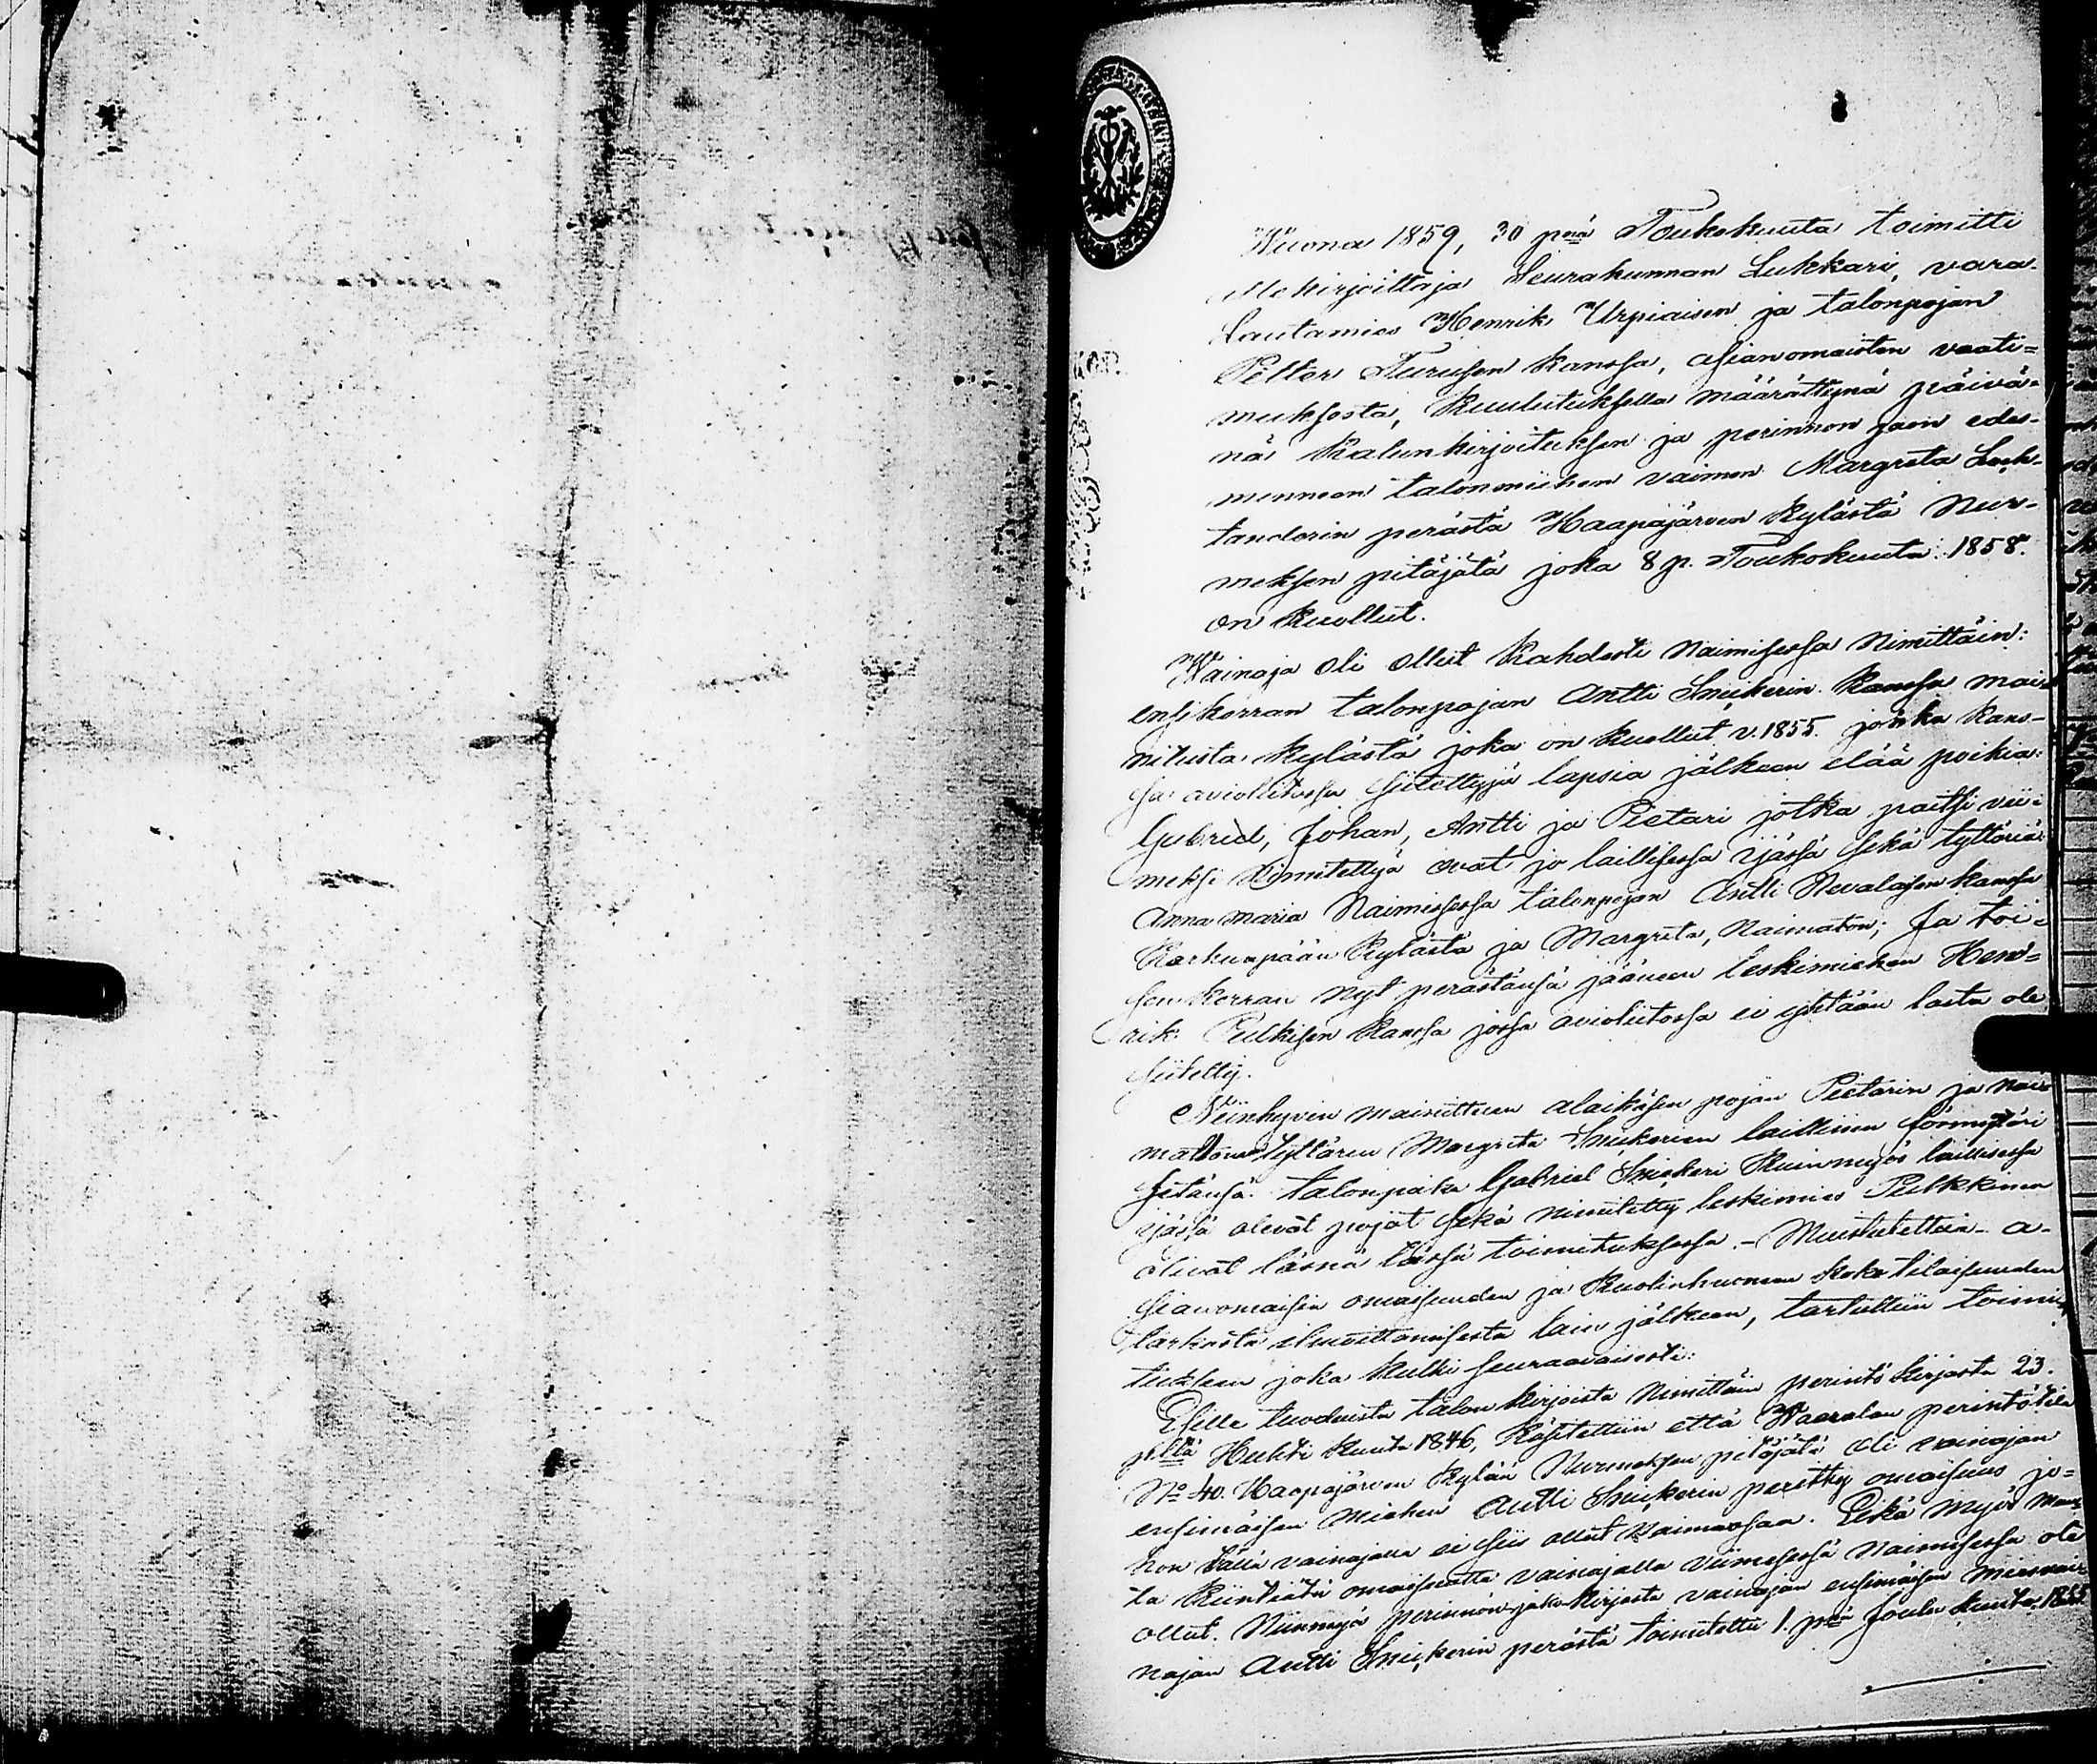 Wuonna 1859, 30 pnä Toukokuuta toimitti
allekirjoittaja Seurakunnan Lukkari, vara-
lautamies Henrik Urpiaisen ja talonpojan
Petter Turusen kanssa, asianomaisten vaati=
muksesta, kuulutuksella määrättynä päivä-
nä kalunkirjoituksen ja perinnön jaon edes-
menneen talonmiehen vaimon Margreta Lack-
tanderin perästä Haapajärven kylästä Nur-
meksen pitäjätä joka 8 p. Toukokuuta 1858.
on kuollut.
Wainaja oli ollut kahdesti naimisessa nimittäin:
ensikerran talonpojan Antti Snickerin kanssa mai-
nitusta kylästä joka on kuollut v. 1855. jonka kans-
sa aviolitossa siitettyjä lapsia jälkeen elää poikia:
Gabriel, Johan, Antti ja Pietari jotka paitsi vii-
meksi nimitettyä ovat jo laillisessa ijässä sekä tyttäriä:
Anna Maria naimisessa talonpojan Antti Nevalaisen kanssa
Karhunpään kylästä ja Margreta, naimaton; Ja toi-
sen kerran nyt perästänsä jääneen leskimiehen Hen-
rik Pulkisen kanssa jossa aviolitossa ei yhtään lasta ole
siitetty.
Niinhyvin mainittuen alaikäsen pojan Pietarin ja nai-
mattoman tyttären Margreta Snickerien laillinen förmynäri
setänsä talonpoika Gabriel Snickeri kuinmyös laillisessa
ijässä olevat pojat sekä nimitetty leskimies Pulkkinen
olivat läsnä tässä toimituksessa. - Muistutettua a-
sianomaisia omaisuuden ja kuolinhuoneen koko tilaisuuden
tarkasta ilmoittamisesta lain jälkeen, tartuttiin toimi-
tukseen joka kulki seuraavaisesti:
Esille tuoduista talon kirjoista nimittäin perintö kirjasta 23.
p:ltä Huhti kuuta 1846, käsitettiin että Waaralan perintötila
No 40. Haapajärven kylää Nurmeksen pitäjätä oli vainajan
ensimäisen miehen Antti Snickerin peritty omaisuus jo=
hon tällä vainajalla ei siis ollut naimaosaa. Eikä myös muu-
ta kiinteätä omaisuutta vainajalla viimesessä naimisessa ole
ollut. Niinmyö perinnön jako kirjasta vainajan ensimäisen mies vai-
najan Antti Snickerin perästä toimitettu 1. pnä Joulu kuuta 1855